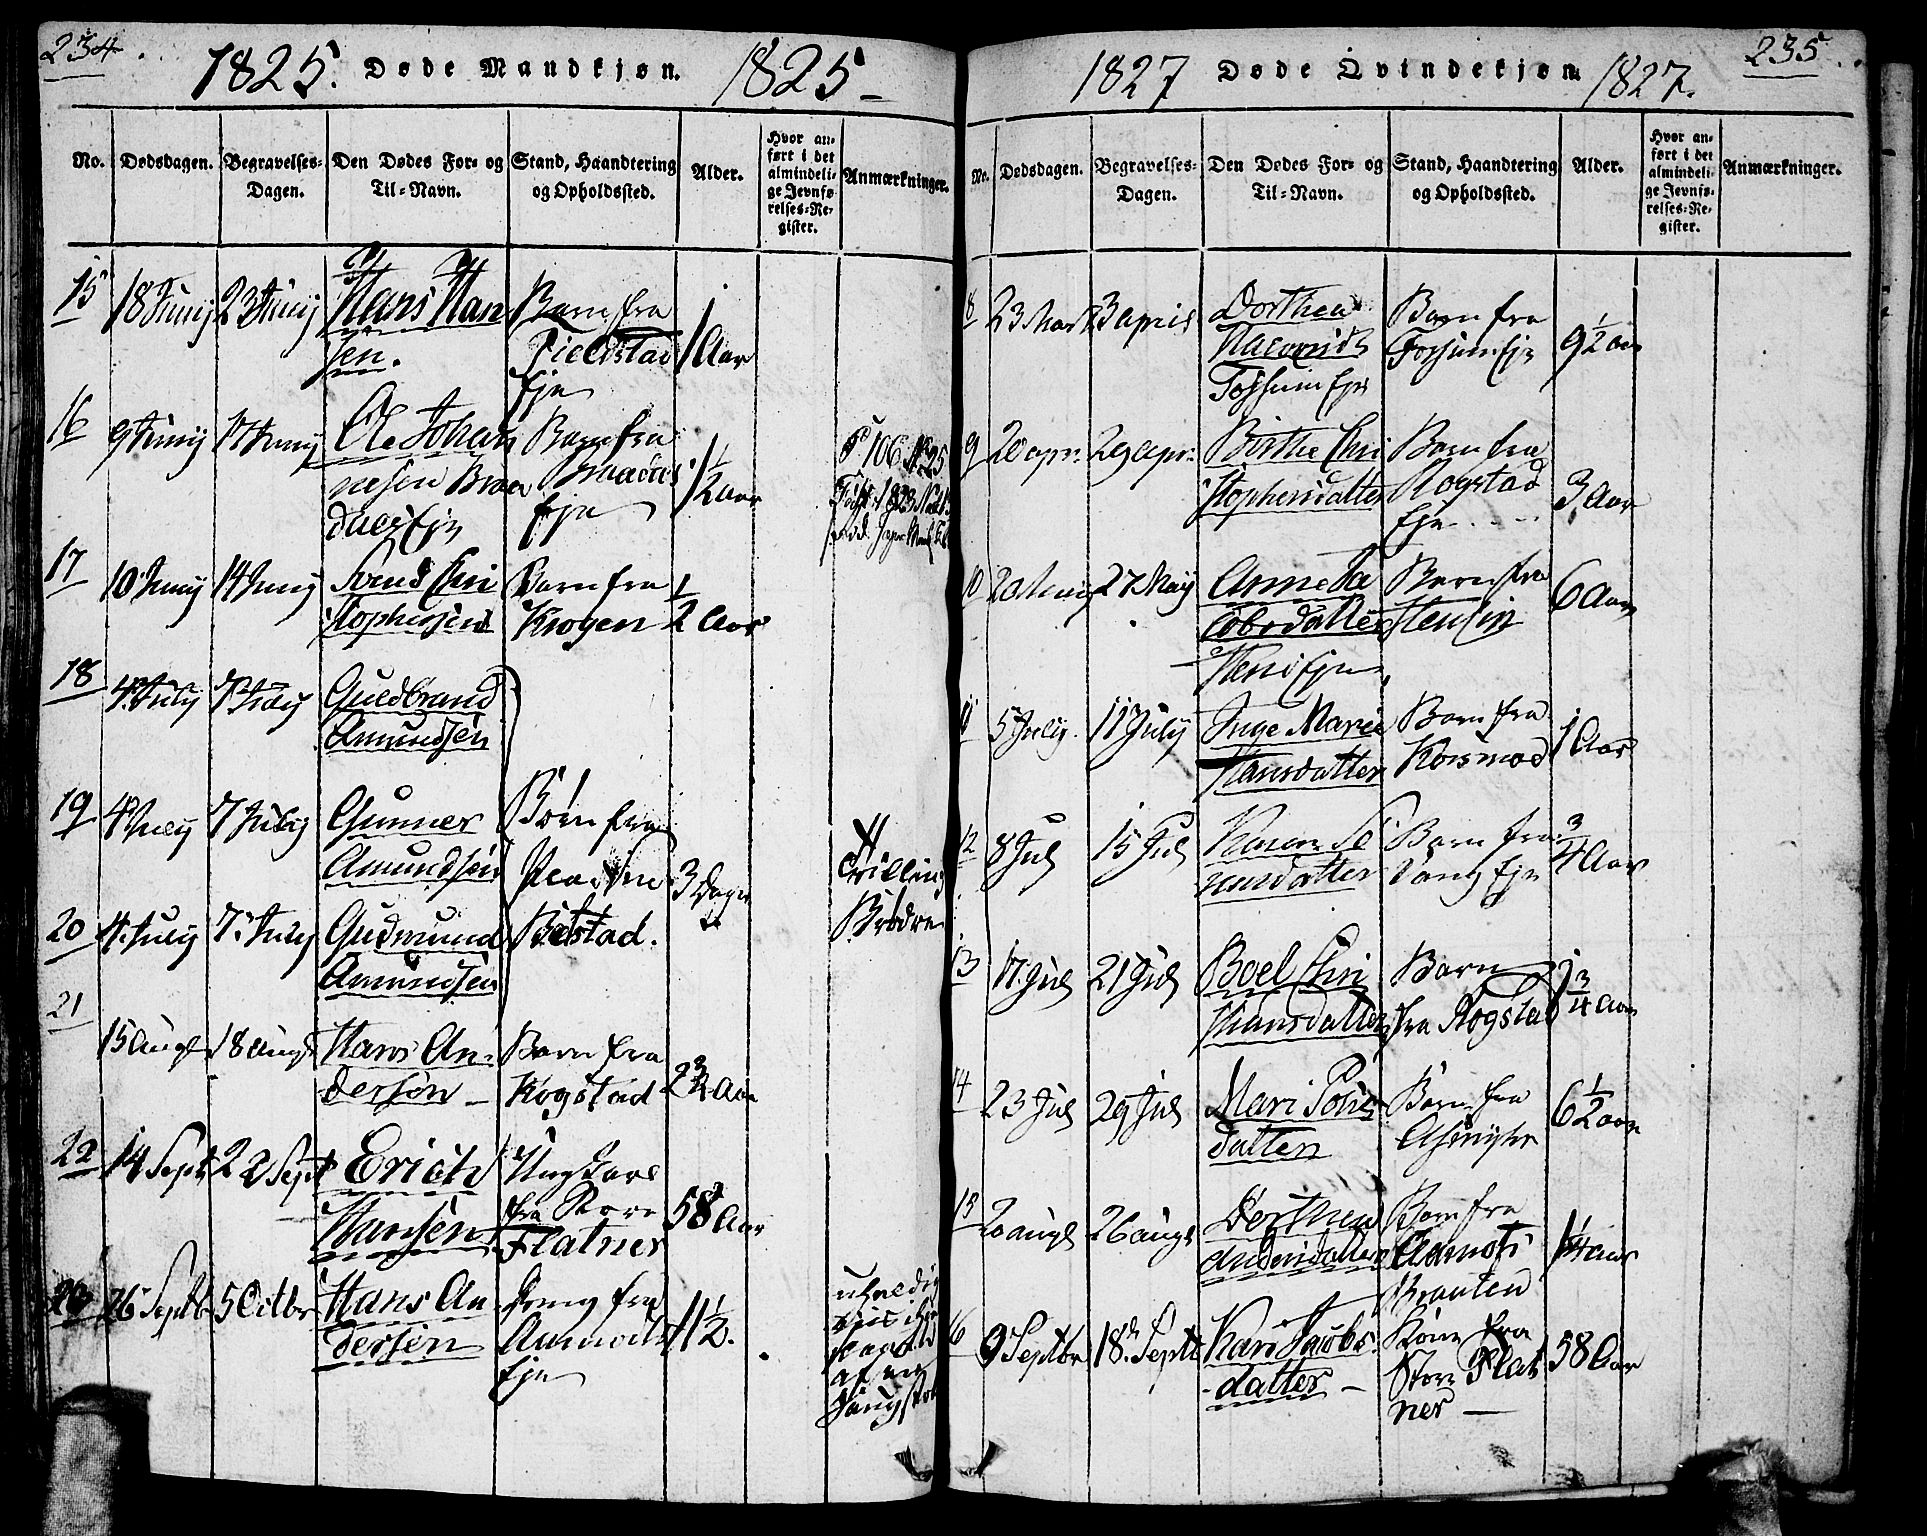 234.
1825. Døde Mandkjøn. 1825
No. Dødsdagen. Begravelses-Dagen. Den Dødes For- og Til-Navn. Stand, Haandtering og Opholdssted. Alder. Hvor anført i det almindelige Jevnførelses-Register. Anmærkninger.
15 18 Junij 23 Junij Hans Hansen. Barn fra Fieldstad Eje 1 Aar
16 9 Junij 17 Junij Ole Johannesen Barn fra Eje 1 1/2 Aar
17 10 Junij 14 Junij Svend Christophersen Barn fra Krogen 1/2 Aar
18 4 July 7 July Guldbrand Amundsen
19 4 July 7 July Gunner Amundsen Børn fra 3 Dage Trilling Brødre
20 4. July 7. July Gudmund Amundsen Bilstad.
21 15 Augt 18 Augt Hans Andersøn Barn fra Rogstad 2 3/4 Aar
22 14 Sept 22 Sept Erich Hansen Ungkarl fra Store Flatner 58 Aar
23 26 Septb 5 Octbr Hans Andersen Dreng fra Eje 11 1/2. af en
235.
1827 Døde Qvindekjøn 1827.
No. Dødsdagen. Begravelses-Dagen. Den Dødes For- og Til-Navn. Stand, Haandtering og Opholdssted. Alder. Hvor anført i det almindelige Jevnførelses-Register. Anmærkninger.
8 23 Mart 3 april Dorthea Fossum Eje Barn fra Fossum Eje 9 1/2 aar
9 20 apr. 29 apr. Birthe Christophersdatter Barn fra Rogstad Eje 3 Aar
10 20 May 27 May Anne Jacobsdatter Barn fra 6 Aar
11 5 July. 11 July Inge Marie Hansdatter Barn fra Korsmoe 1 Aar
12 8 Jul 15 Jul Karen Barn fra Vang Eje 3/4 Aar
13 17. Jul 21 Jul Boel Christiansdatter Barn fra Rogstad 1 3/4 Aar
14 23 Jul 29 Jul Mari datter Barn fra 6 1/2 aar
15 20 augt 26 augt Dorthea Andersdatter Barn fra Braaten 1 1/4 aar
16 9 Septbr 18. Septb Kari Jacobsdatter Kone fra Store Flatner 58 Aar